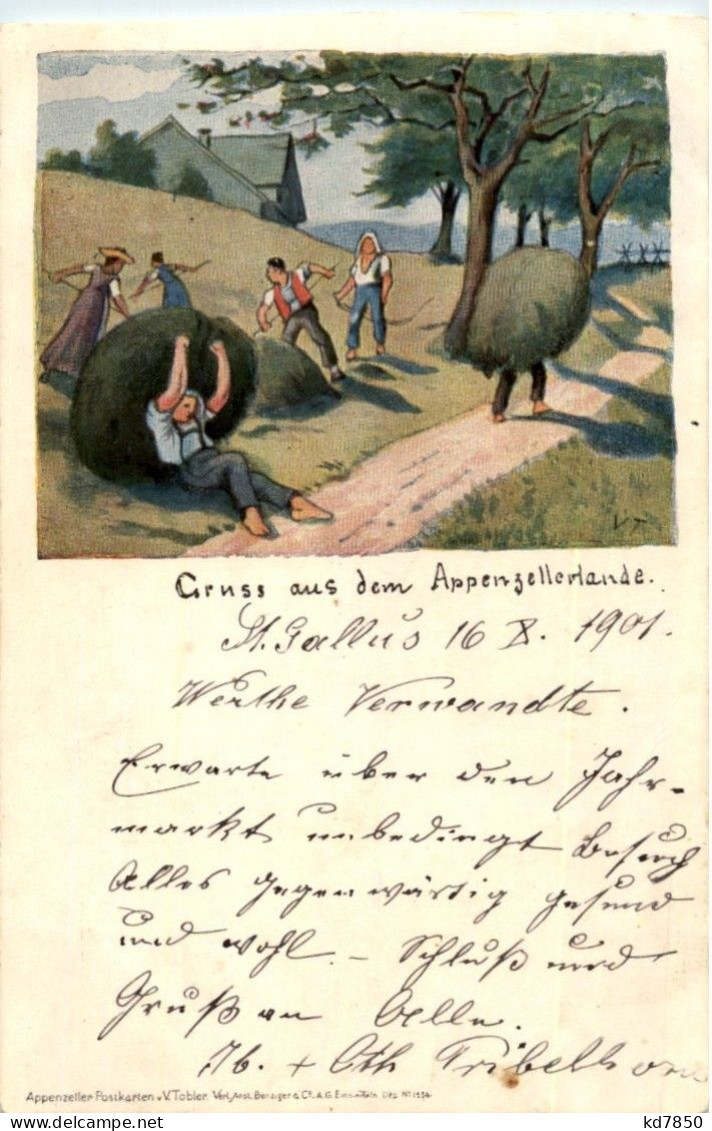 Gruss aus dem Appenzellerlande.
St. Gallus 16 X. 1901.
Werthe Verwandte.
Erwarte über den Jahr-
markt unbedingt Besuch
Alles gegenwärtig gesund
und wohl. – Schluß und
Gruß an Alle.
Jb. + Oth Tribelhorn
Appenzeller-Postkarten v. V. Tobler. Verl. Anst. Benziger & Co. A.G. Einsiedeln. Dep. No 1554.
V.T.
kd7850